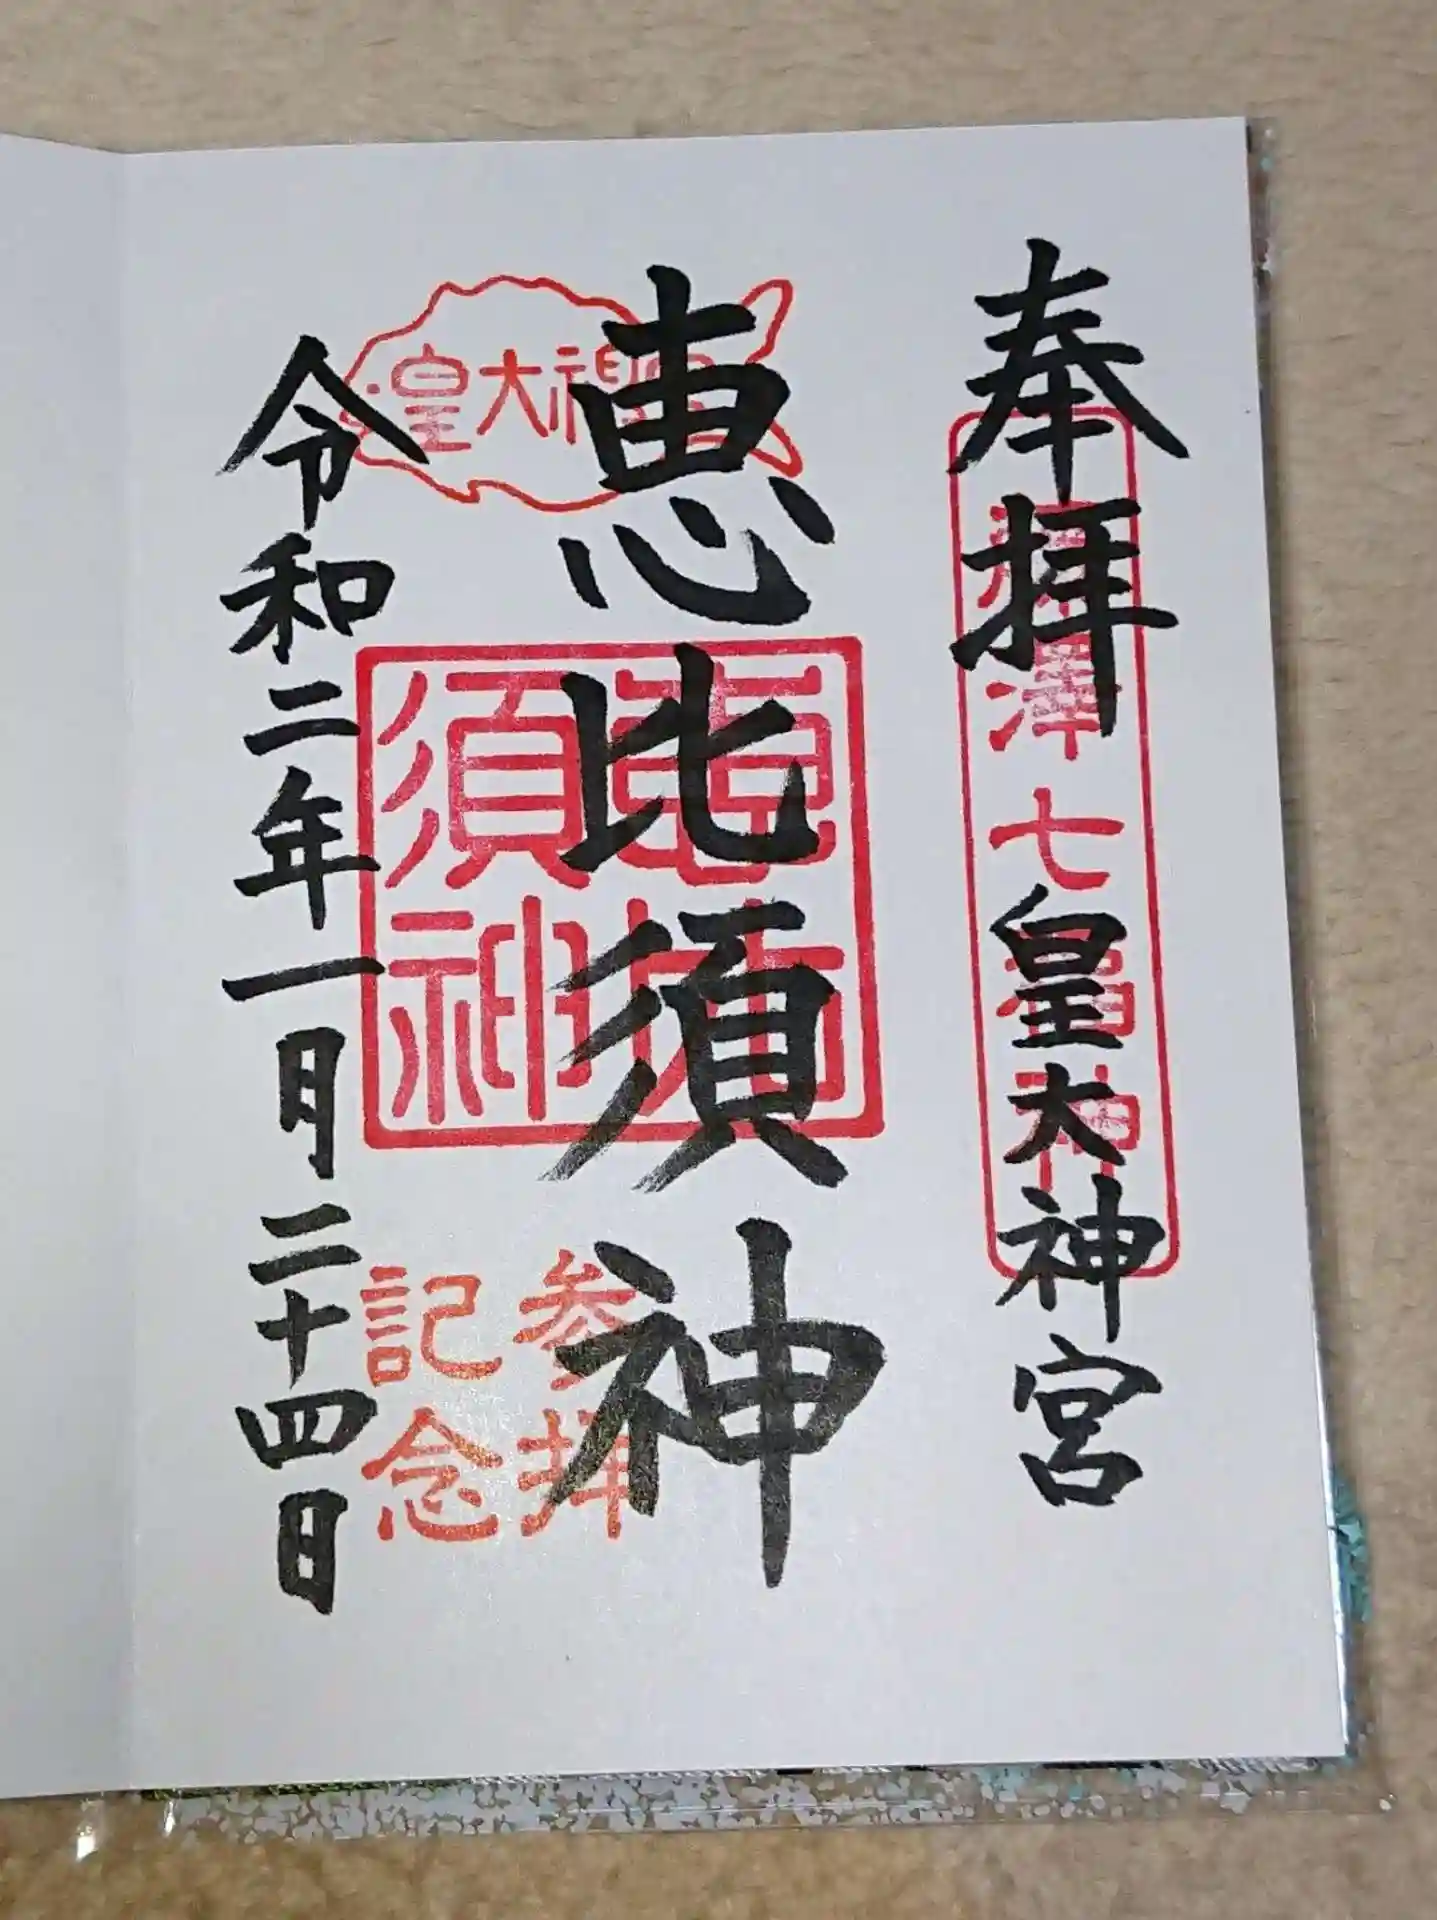 奉拝
藤澤七福神
皇大神宮
恵比須神
皇大神宮
恵比須神
参拝
記念
令和二年一月二十四日